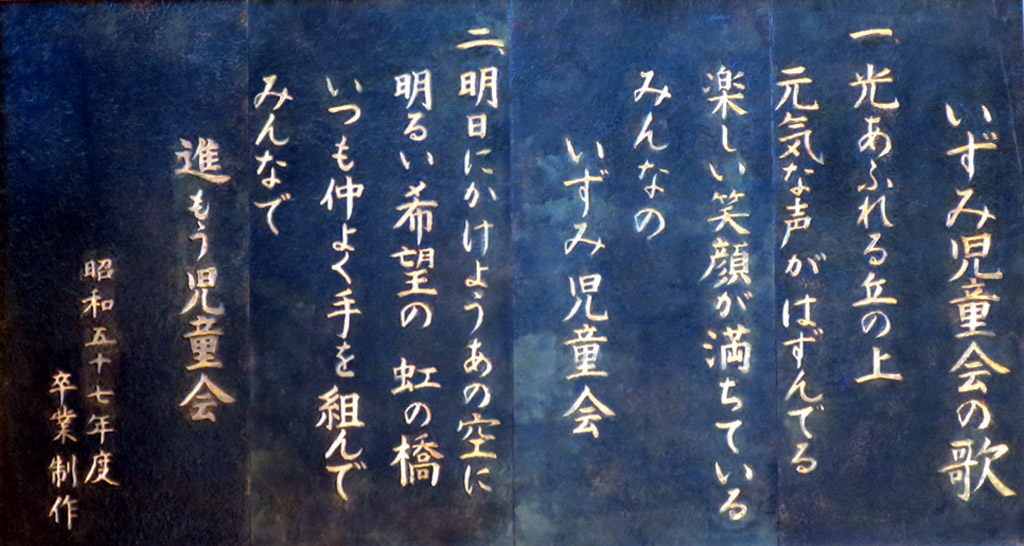 いずみ児童会の歌
一、光あふれる丘の上
元気な声がはずんでる
楽しい笑顔が満ちている
みんなの
いずみ児童会
二、明日にかけようあの空に
明るい希望の 虹の橋
いつも仲よく手を組んで
みんなで
進もう児童会
昭和五十七年度
卒業制作